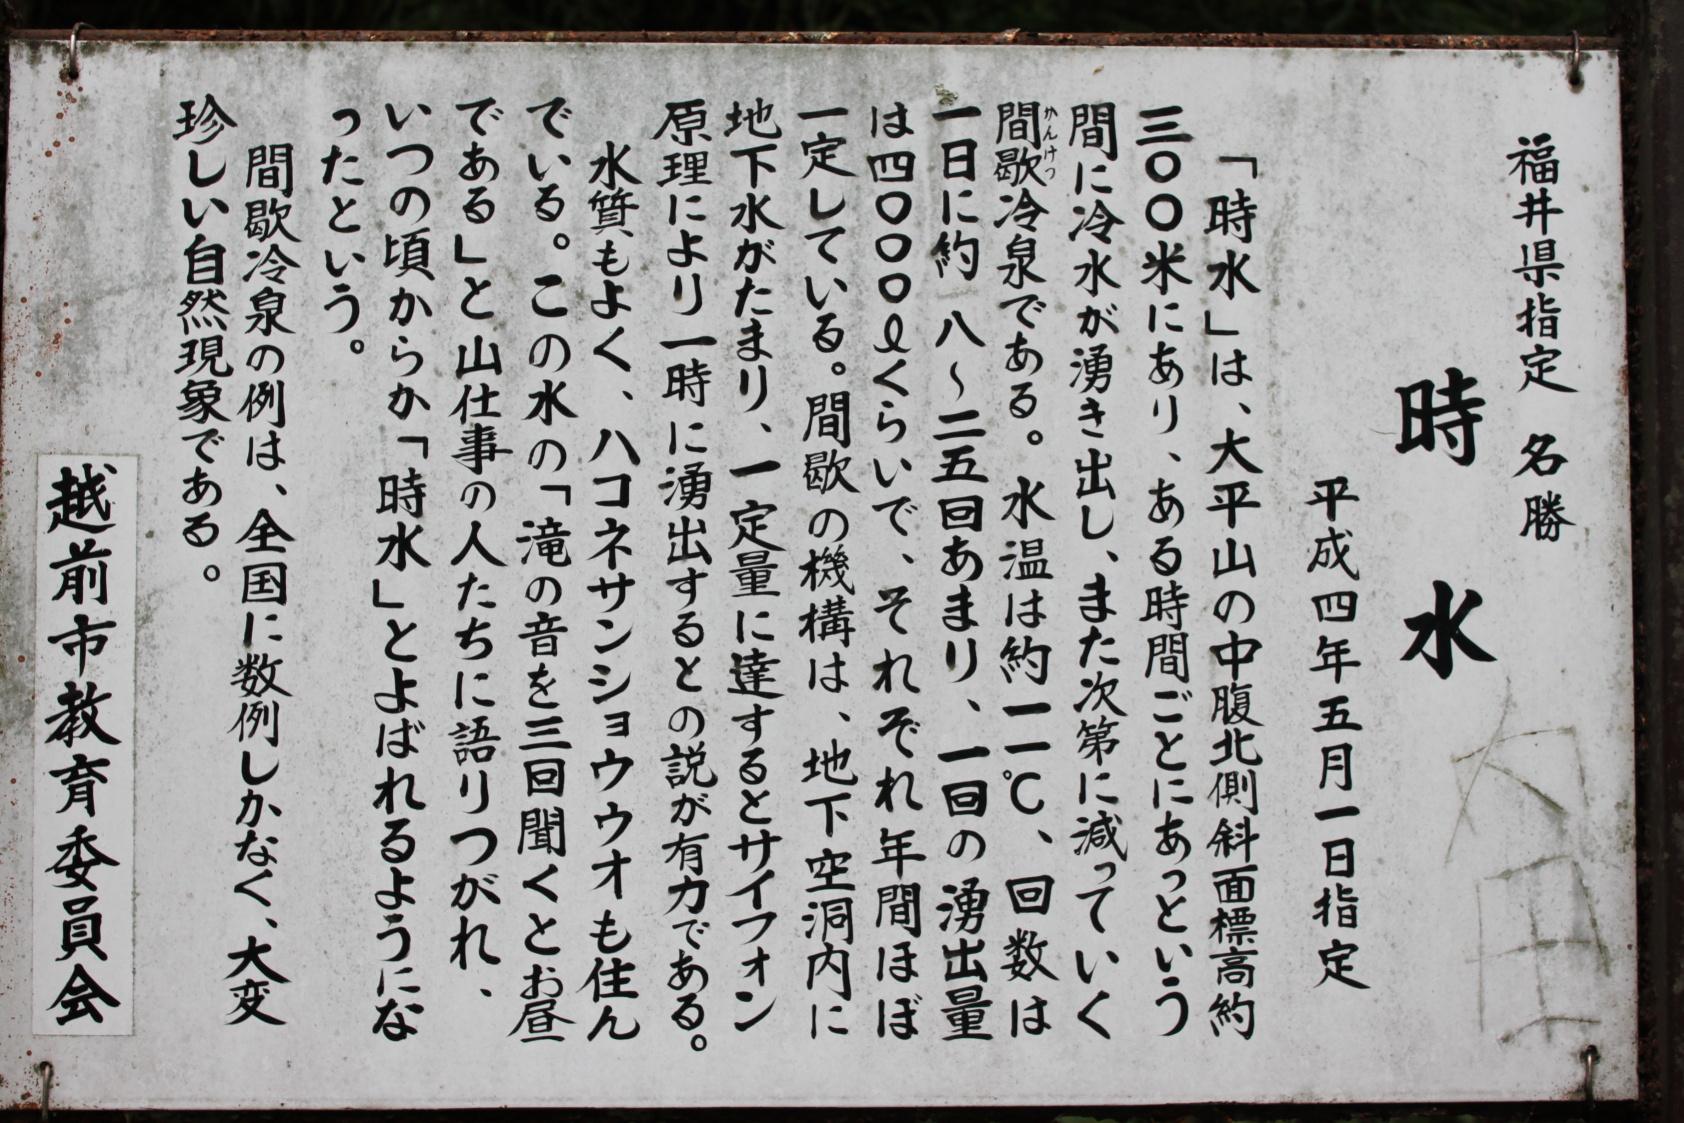 福井県指定　名勝
時水
平成四年五月一日指定
「時水」は、大平山の中腹北側斜面標高約
三〇〇米にあり、ある時間ごとにあっという
間に冷水が湧き出し、また次第に減っていく
間歇冷泉である。水温は約一一℃、回数は
かんけつ
一日に約八～二五回あまり、一回の湧出量
は四〇〇〇ℓくらいで、それぞれ年間ほぼ
一定している。間歇の機構は、地下空洞内に
地下水がたまり、一定量に達するとサイフォン
原理により一時に湧出するとの説が有力である。
水質もよく、ハコネサンショウウオも住ん
でいる。この水の「滝の音を三回聞くとお昼
である」と山仕事の人たちに語りつがれ、
いつの頃からか「時水」とよばれるようにな
ったという。
間歇冷泉の例は、全国に数例しかなく、大変
珍しい自然現象である。
越前市教育委員会